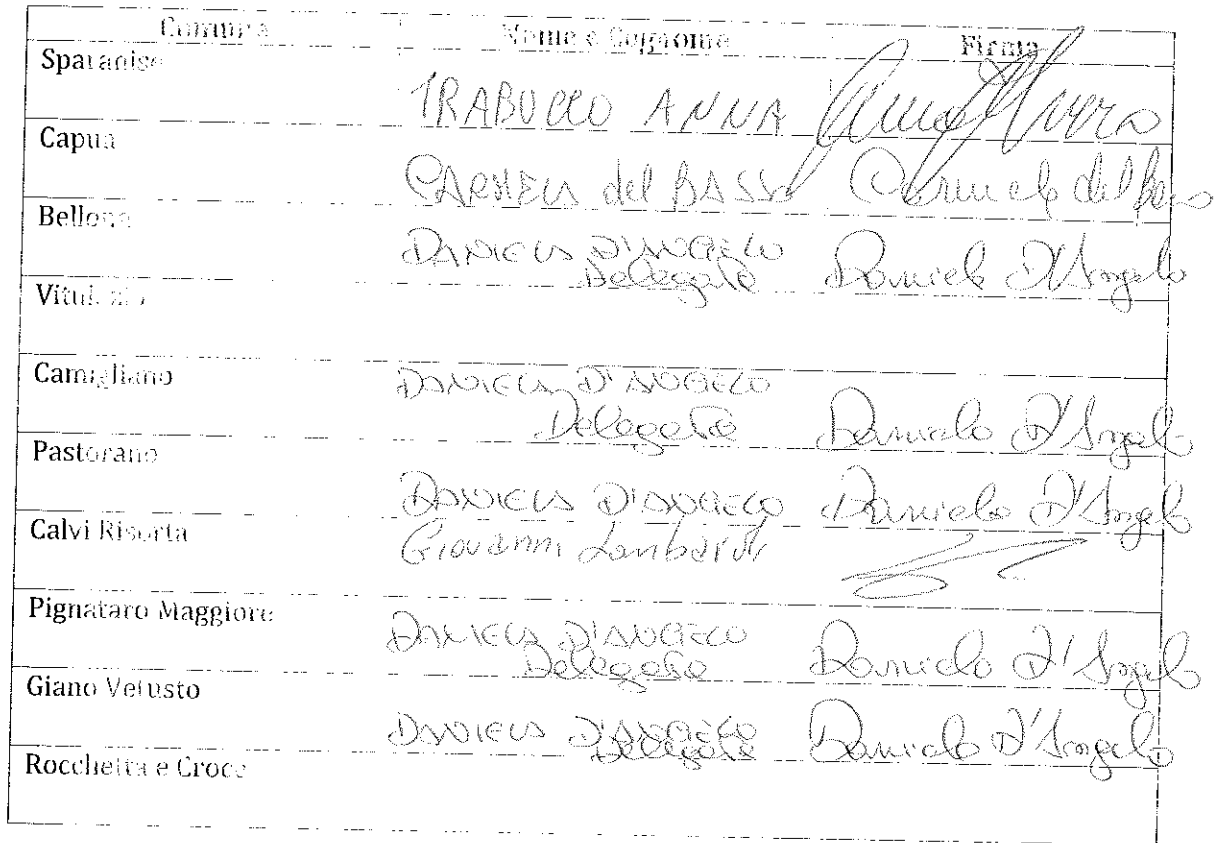 Comune Nome e Cognome Firma
Sparanise
TRABUCCO ANNA
Capua
CARMELA del BASSO Carmela del Basso
Bellona
DANIELA D'ANGELO Daniela D'Angelo
Delegata
Vitulazio
Camigliano
DANIELA D'ANGELO
Delegata Daniela D'Angelo
Pastorano
DANIELA D'ANGELO Daniela D'Angelo
Calvi Risorta
Giovanni Lombardi
Pignataro Maggiore
DANIELA D'ANGELO Daniela D'Angelo
Delegata
Giano Vetusto
DANIELA D'ANGELO Daniela D'Angelo
Delegata
Rocchetta e Croce